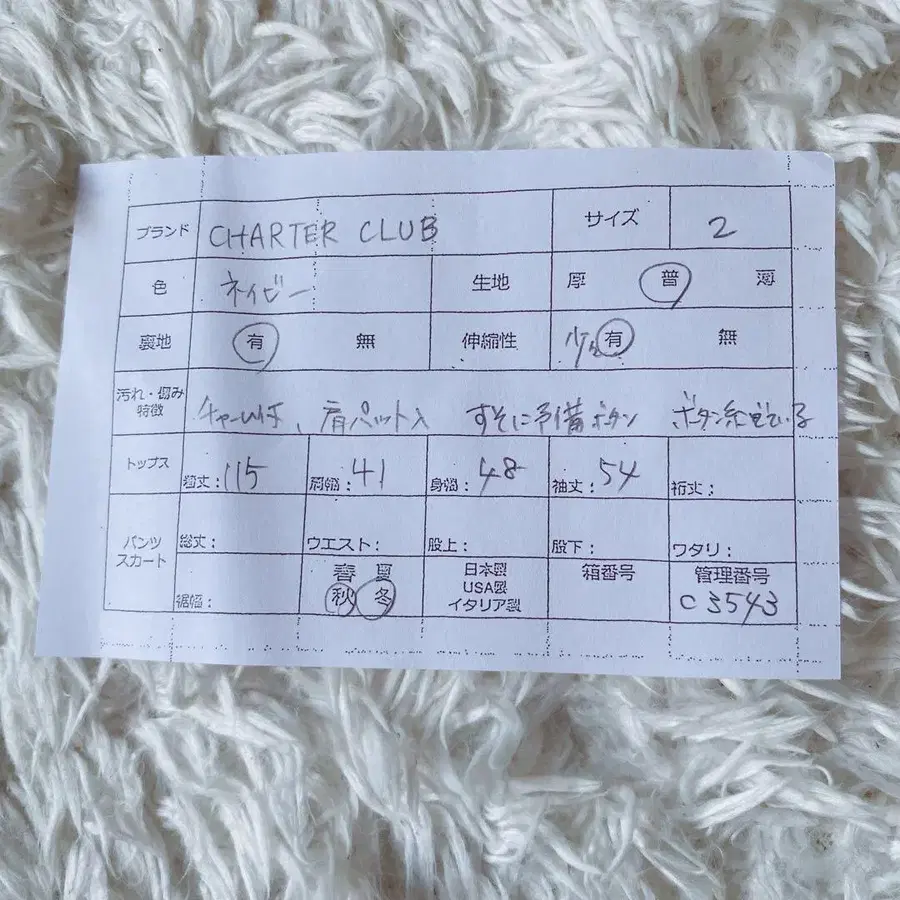 ブランド CHARTER CLUB サイズ 2
色 ネイビー 生地 厚 普 薄
裏地 有 無 伸縮性 少々 有 無
汚れ・傷み
特徴
チャーム付、肩パット入 すそに予備ボタン ボタン
トップス 着丈:115 肩幅:41 身幅:48 袖丈:54 裄丈:
パンツ
スカート
総丈: ウエスト: 股上: 股下: ワタリ:
裾幅:
春 夏
秋 冬
日本製
USA製
イタリア製
箱番号
管理番号
C3543